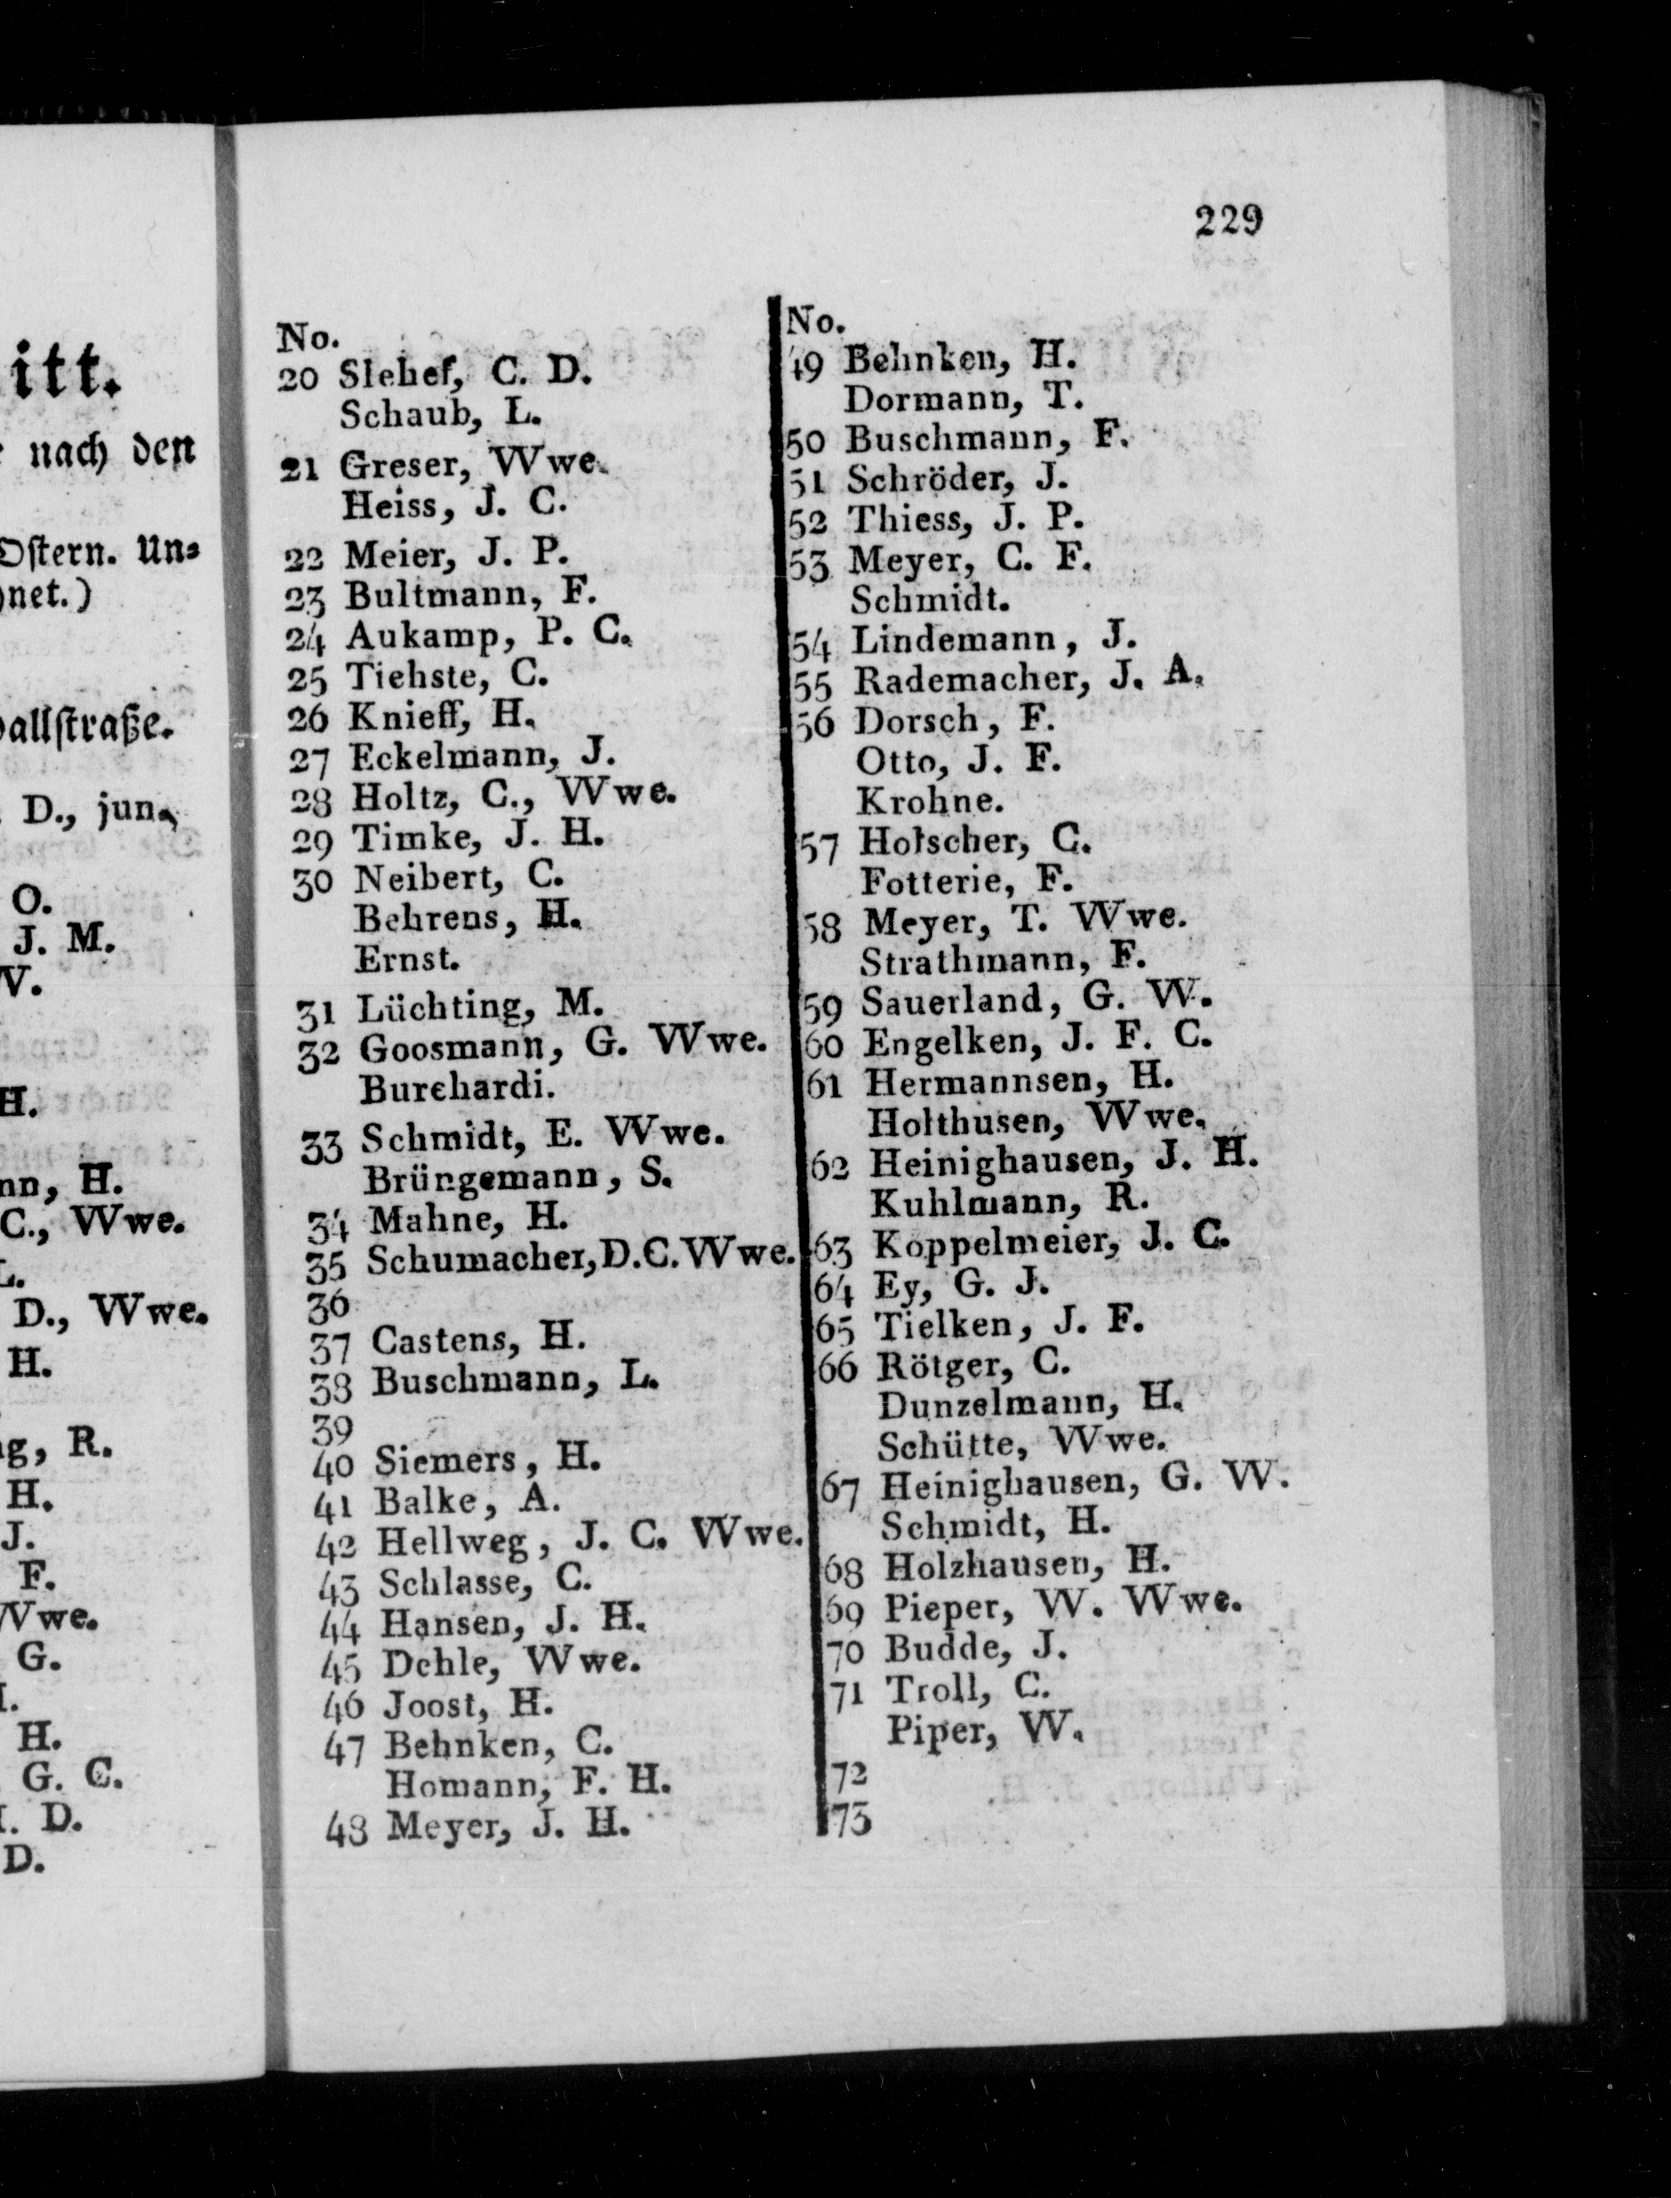 itt.
nach den
Ostern. Un=
net.)
allstraße.
D., jun.,
O.
J. M.
H.
H.
C., Wwe.
D., Wwe.
H.
R.
H.
J.
F.
Wwe.
G.
H.
G. C.
D.
D.
229
No.
20 Slehef, C. D.
Schaub, L.
21 Greser, Wwe.
Heiss, J. C.
22 Meier, J. P.
23 Bultmann, F.
24 Aukamp, P. C.
25 Tiehste, C.
26 Knieff, H.
27 Eckelmann, J.
28 Holtz, C., Wwe.
29 Timke, J. H.
30 Neibert, C.
Behrens, H.
Ernst.
31 Lüchting, M.
32 Goosmann, G. Wwe.
Burchardi.
33 Schmidt, E. Wwe.
Brüngemann, S.
34 Mahne, H.
35 Schumacher, D. C. Wwe.
36
37 Castens, H.
38 Buschmann, L.
39
40 Siemers, H.
41 Balke, A.
42 Hellweg, J. C. Wwe.
43 Schlasse, C.
44 Hansen, J. H.
45 Dehle, Wwe.
46 Joost, H.
47 Behnken, C.
Homann, F. H.
48 Meyer, J. H.
No.
49 Behnken, H.
Dormann, T.
50 Buschmann, F.
51 Schröder, J.
52 Thiess, J. P.
53 Meyer, C. F.
Schmidt.
54 Lindemann, J.
55 Rademacher, J. A.
56 Dorsch, F.
Otto, J. F.
Krohne.
57 Holscher, C.
Fotterie, F.
58 Meyer, T. Wwe.
Strathmann, F.
59 Sauerland, G. W.
60 Engelken, J. F. C.
61 Hermannsen, H.
Holthusen, Wwe.
62 Heinighausen, J. H.
Kuhlmann, R.
63 Koppelmeier, J. C.
64 Ey, G. J.
65 Tielken, J. F.
66 Rötger, C.
Dunzelmann, H.
Schütte, Wwe.
67 Heinighausen, G. W.
Schmidt, H.
68 Holzhausen, H.
69 Pieper, W. Wwe.
70 Budde, J.
71 Troll, C.
Piper, W.
72
73